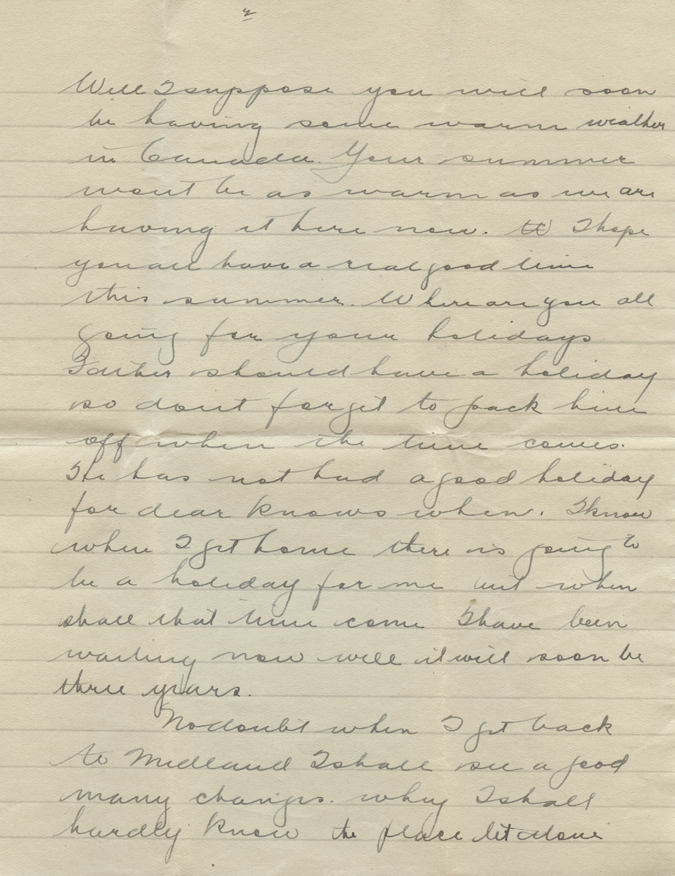 2
Well I suppose you will soon
be having some warm weather
in Canada. Your summer
wont be as warm as we are
having it here now. I hope
you all have a real good time
this summer. Where are you all
going for your holidays
Father should have a holiday
so dont forget to pack him
off when the time comes.
He has not had a good holiday
for dear knows when. I know
when I get home there is going to
be a holiday for me but when
shall that time come I have been
waiting now well it will soon be
three years.
No doubt when I get back
to Midland I shall see a good
many changes. why I shall
hardly know the place let alone